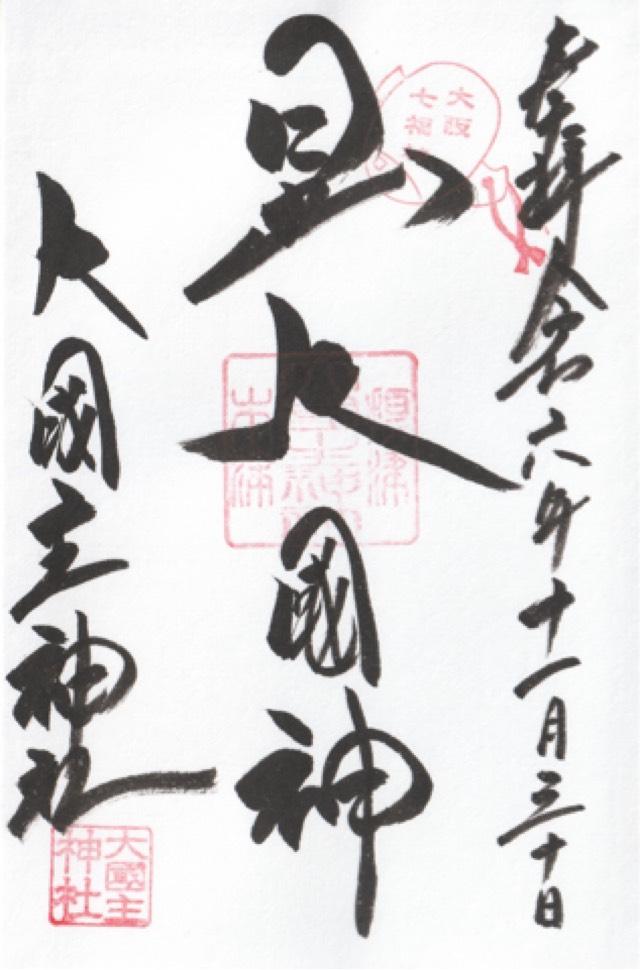 奉拝 令和六年十一月三十日
大阪
七福
大國神
大國主神社
大國主
神社